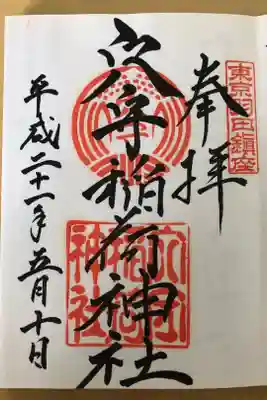 東京羽田鎮座
奉拝
穴守稲荷神社
穴守
稲荷
神社
平成二十一年五月十日